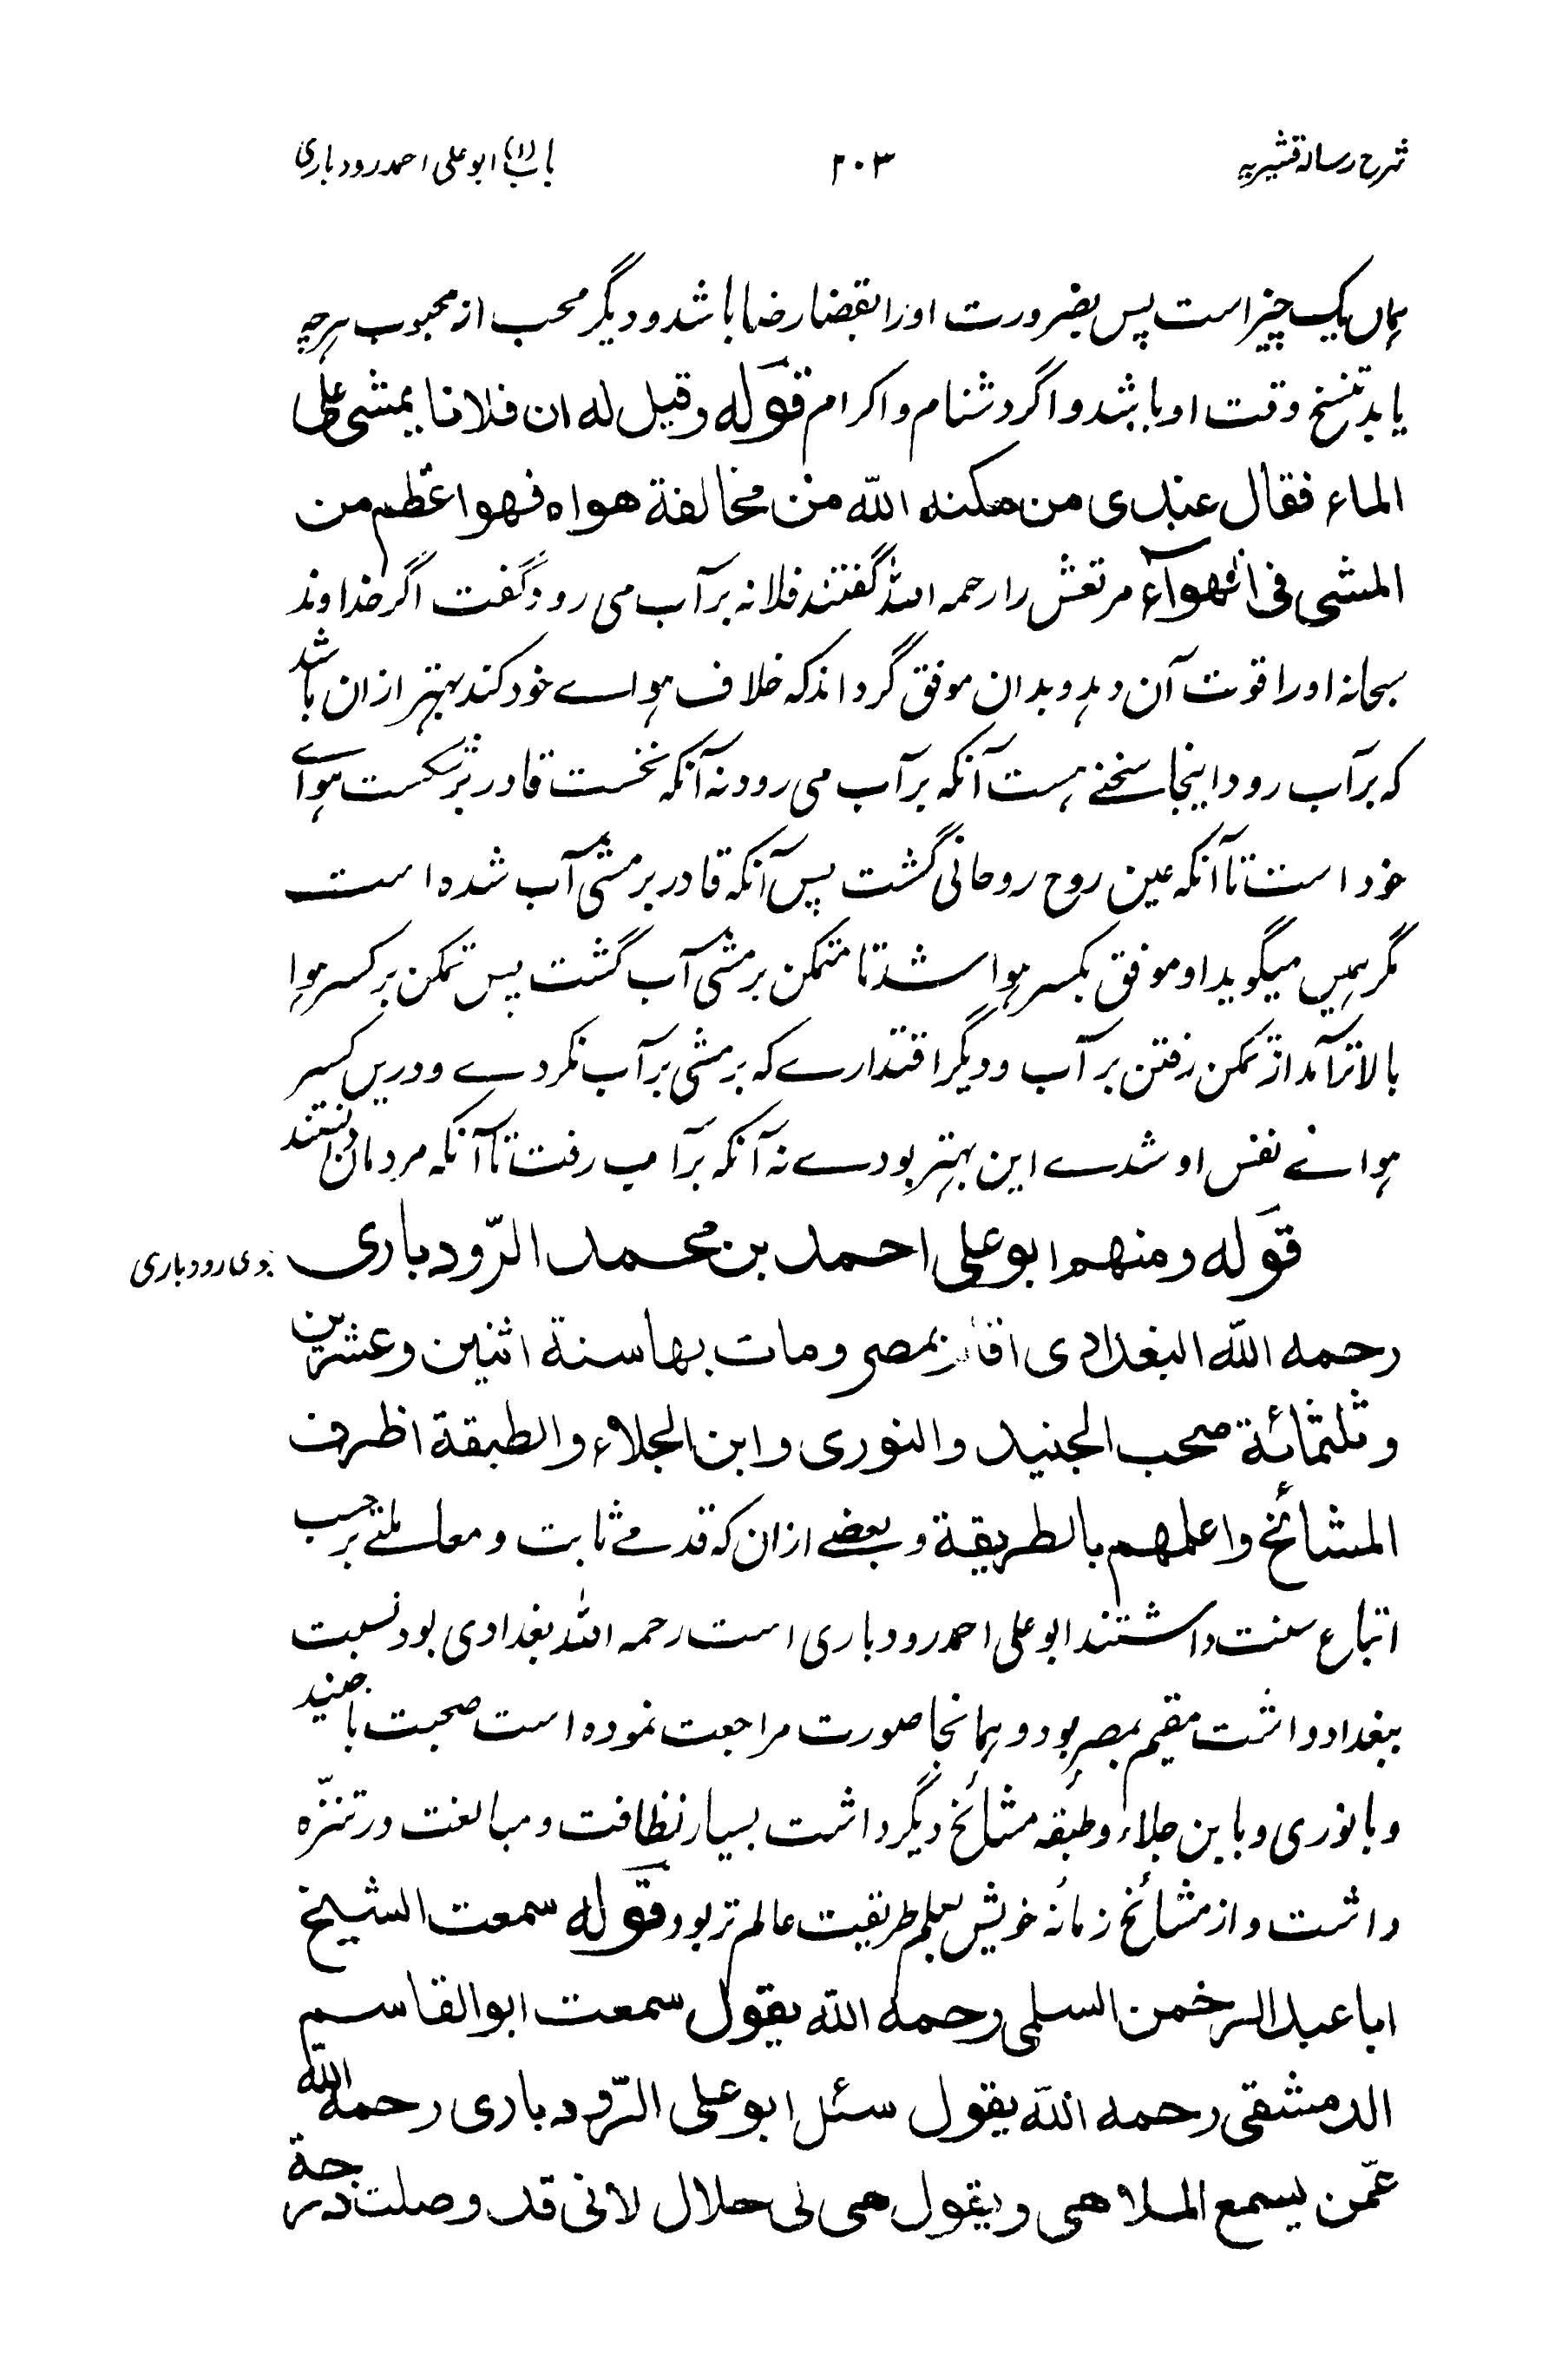 شرح رسالہ قشیریہ
۲۰۳
باب (۱) ابو علی احمد رودباری
ہماں یک چیز است پس بضرورت او را بقضا رضا باشد و دیگر محب از محبوب ہرچہ
یابد وقت او باشد و اگر دشنام و اکرام قولہ وقیل لہ ان فلانا یمشی علی
الماء فقال عندی من مکنہ اللّٰہ من مخالفة ھواہ فھو اعظم من
المشی فی الھوآء مرتعش را رحمہ اللہ گفتند فلانہ بر آب می رود گفت اگر خداوند
سبحانہ او را قوت آن دہد و بدان موفق گرداند کہ خلاف ہواے خود کند بہتر ازان باشد
کہ بر آب رود اینجا سخنے ہست آنکہ بر آب می رود نہ آنکہ نخست قادر بر شکست ہواے
خود است تا آنکہ عین روح روحانی گشت پس آنکہ قادر بر مشی آب شدہ است
مگر ہمیں میگوید او موفق بکسر ہوا شد تا متمکن بر مشی آب گشت پس تمکن بر کسر ہوا
بالاتر آمد از تمکن رفتن بر آب و دیگر اقتدارے کہ بر مشی بر آب نکردے و دریں کسر
ہوائے نفس او شدے این بہتر بودے نہ آنکہ بر آب رفت تا آنکہ مردمان دانستند
قولہ ومنھم ابو علی احمد بن محمد الرّودباری
رودباری
رحمہ اللّٰہ البغدادی اقام بمصر ومات بھا سنة اثنین وعشرین
وثلثمائة صحب الجنید والنوری وابن الجلاء والطبقة اظرف
المشائخ واعلمھم بالطریقة و بعضے ازان کہ قدمے ثابت و معاملتے بر حسب
اتباع سنت داشتند ابو علی احمد رودباری است رحمہ اللہ بغدادی بود نسبت
ببغداد داشت مقیم بمصر بود و ہمانجا صورت مراجعت نمودہ است صحبت با جنید
و با نوری و با بن جلاء و طبقہ مشائخ دیگر داشت بسیار نظافت و مبالغت در تنزّہ
داشت و از مشائخ زمانہ خویش بعلم طریقت عالم تر بود قولہ سمعت الشیخ
ابا عبد الرحمن السلمی رحمہ اللّٰہ یقول سمعت ابو القاسم
الدمشقی رحمہ اللّٰہ یقول سئل ابو علی الرّودباری رحمہ اللّٰہ
عمّن یسمع الملاھی ویقول ھی لی حلال لانی قد وصلت درجة